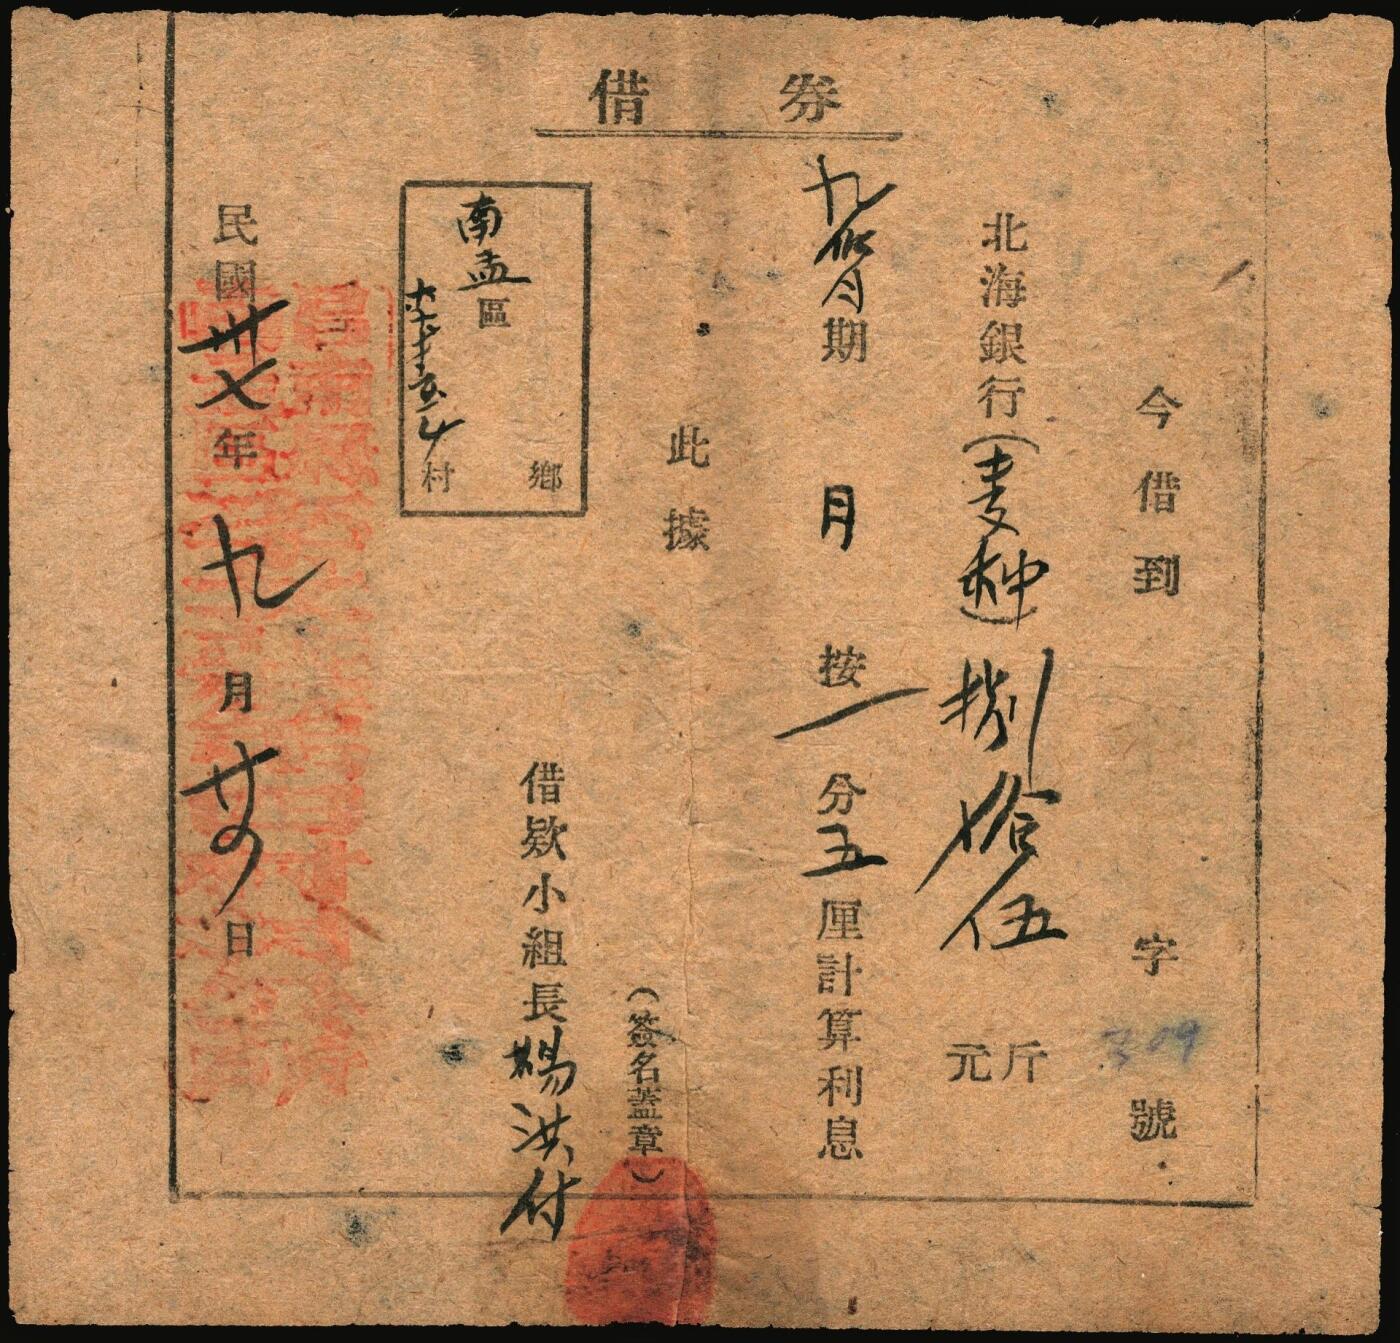 借券
今借到 字 309 號
北海銀行(麦种)捌拾伍 元斤
九個月期 月 按一分五厘計算利息
此據
(簽名蓋章)
借欵小組長 楊洪付
鄉
南孟區
村
民國卅七年九月廿 日